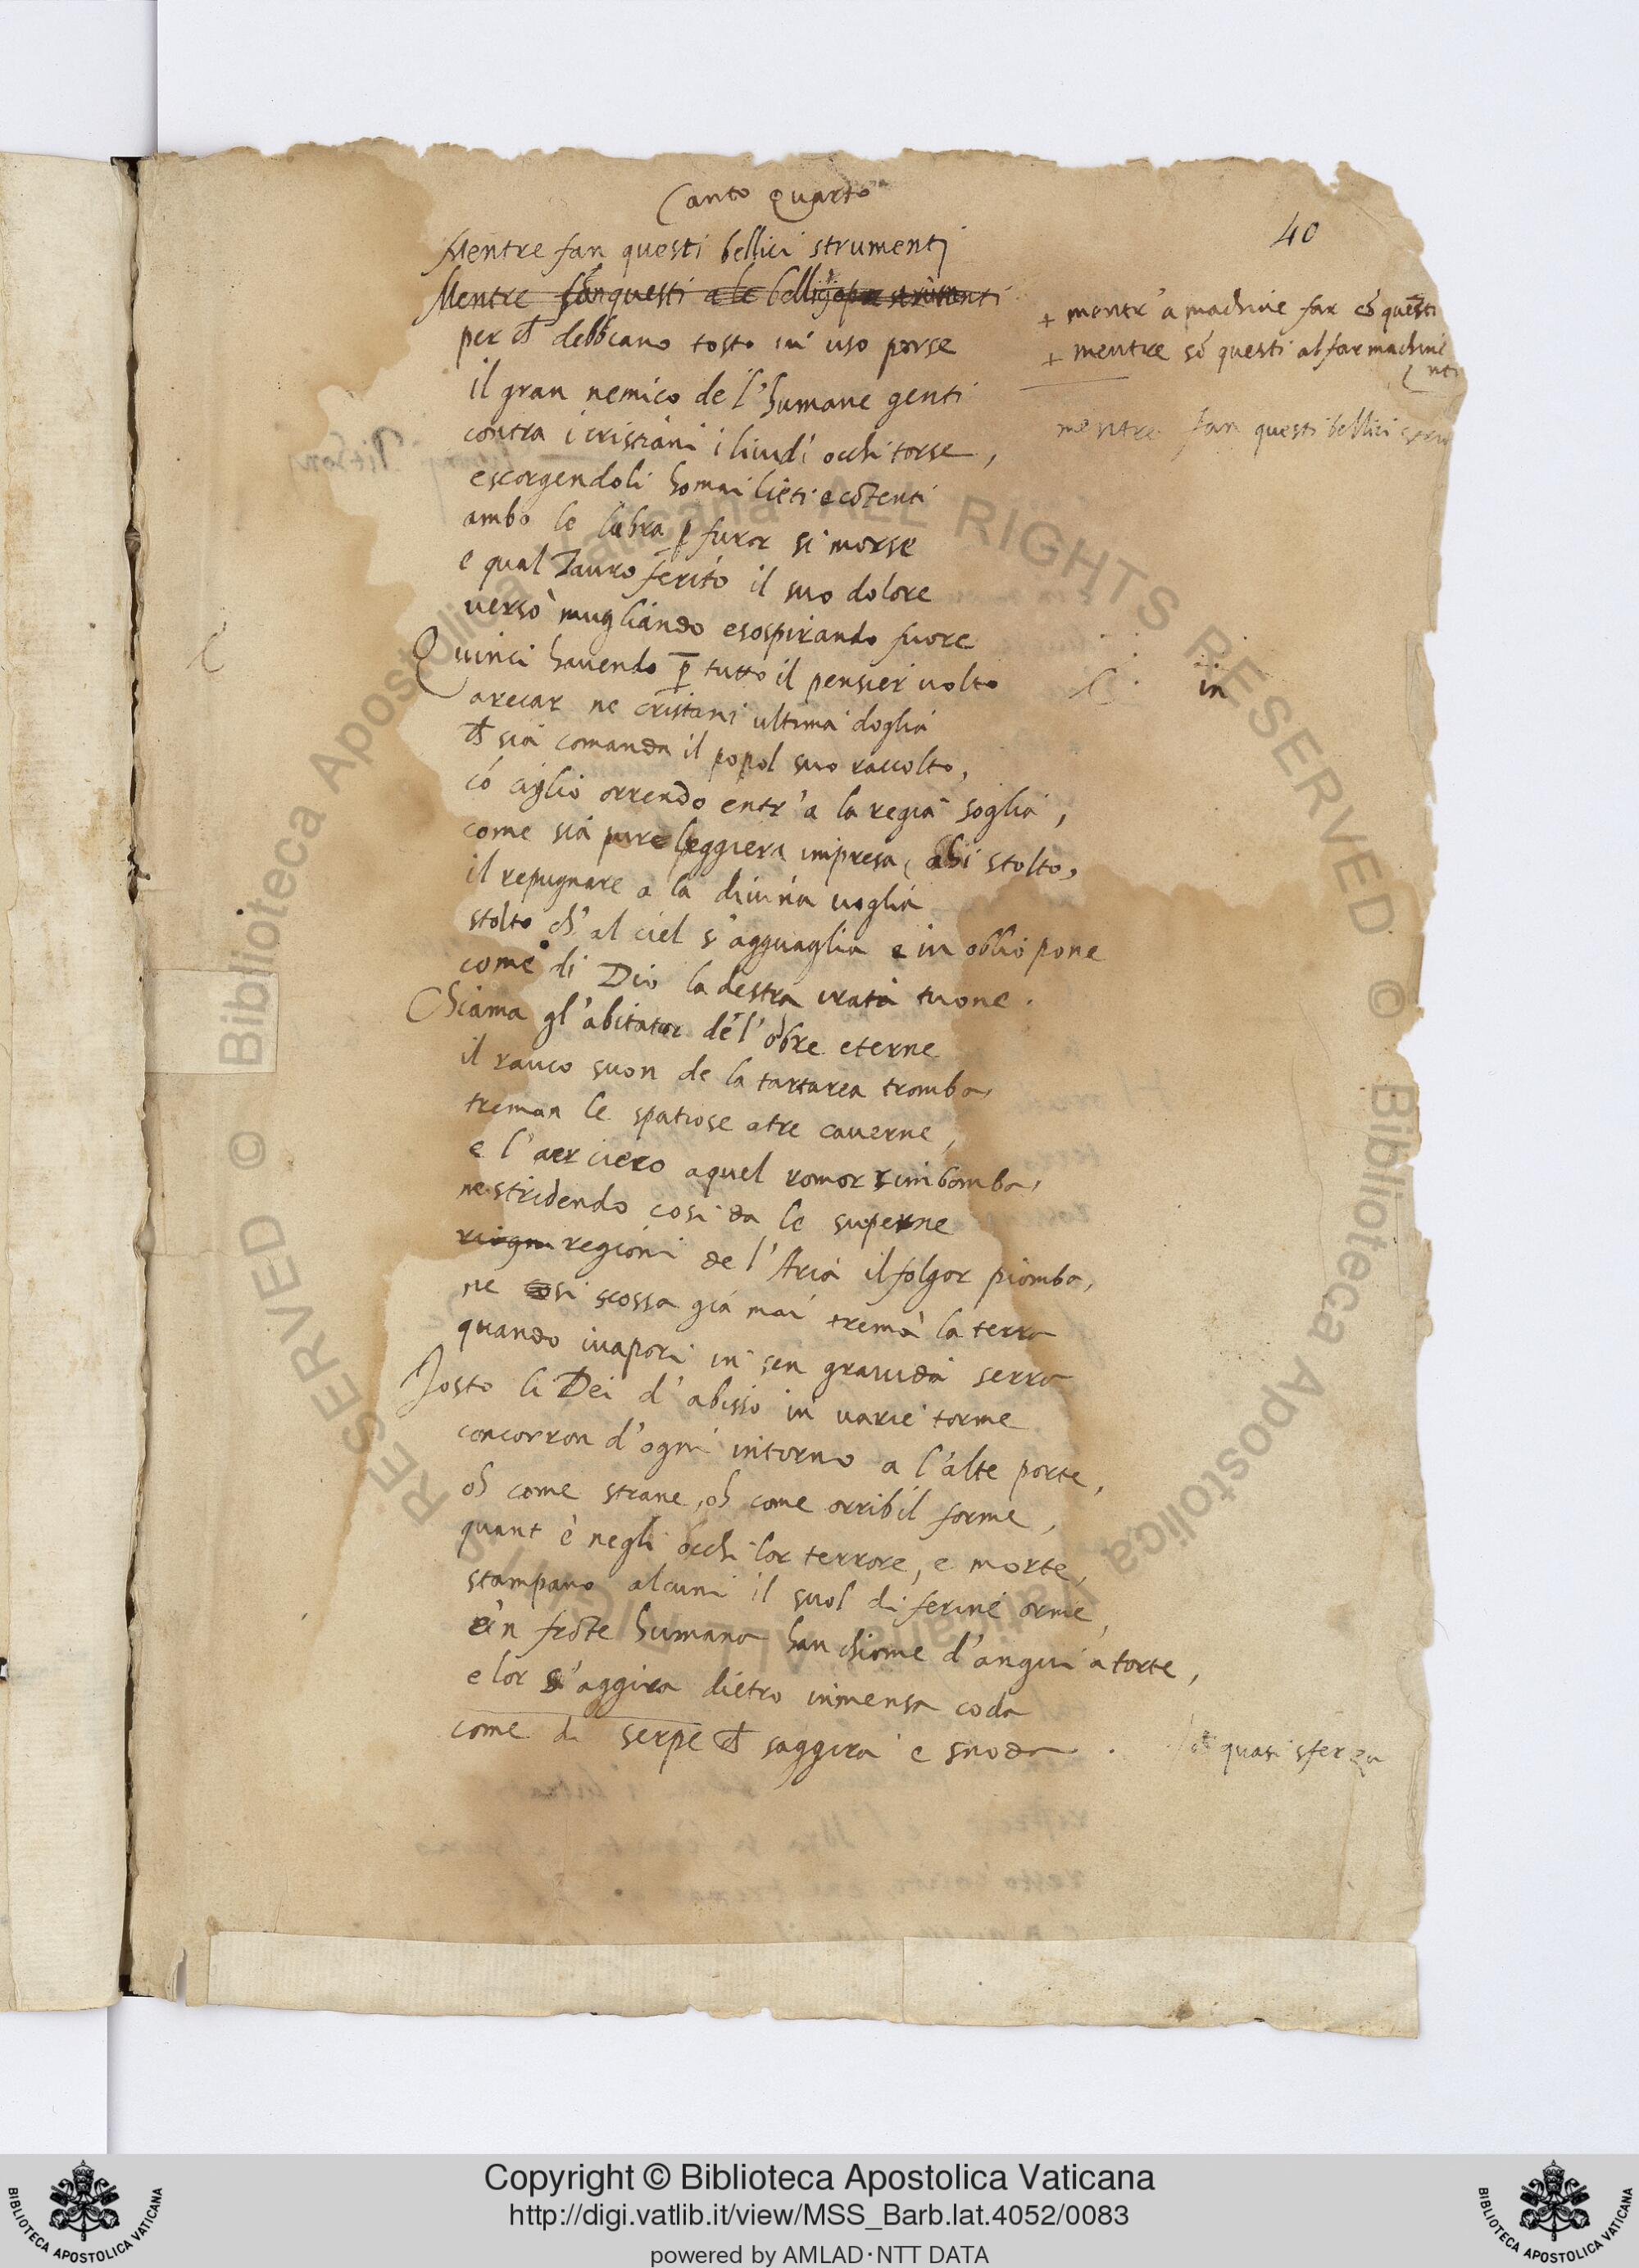 Canto Quarto
40
Mentre fan questi bellici strumenti
Mentre són questi a le bellich'opre
per ch debbeano tosto in uso porse
il gran nemico de l'humane genti
contra i cristiani i liuidi occhi torse,
escorgendoli homai lieti e cōtenti
ambo le labra ꝑ furor si morse
e qual Tauro ferito il suo dolore
versò mugliando esospirando fuore
Quinci hauendo ꝑ tutto il pensier volto
arecar ne cristiani ultima doglia
ch sia comanda il popol suo raccolto,
có ciglio orrendo entr'a la regia soglia,
come sia pure leggiera impresa (ahi stolto,
il repugnare a la diuina voglia
stolto ch'al ciel s'agguaglia e in oblio pone
come di Dio la destra irata tuone.
Chiama gl'abitator de l'óbre eterne
il rauco suon de la tartarea tromba,
treman le spatiose atre cauerne,
e l'aer cieco aquel romor rimbomba,
ne stridendo cosi da le superne
regioni de l'Aria il folgor piomba,
ne cosi scossa già mai tremà la terra
quando ivapori in sen grauida serra
Tosto li Dei d'abisso in varie torme
concorron d'ogni intorno a l'alte porte,
oh come strane, oh come orribil forme,
quant è negli occhi lor terrore, e morte,
stampano alcuni il suol di ferine orme,
e'n frōte humana han chiome d'angui atorte,
e lor s'aggira dietro inmensa coda
come di serpe ch saggira e snoda.
+ mentr'a machine far só questi
+ mentre só questi al far machine
mentre fan questi bellici stru
in
quasi sferza
Copyright © Biblioteca Apostolica Vaticana
http://digi.vatlib.it/view/MSS_Barb.lat.4052/0083
powered by AMLAD·NTT DATA
BIBLIOTECA APOSTOLICA VATICANA
BIBLIOTECA APOSTOLICA VATICANA
© Biblioteca Apostolica Vaticana ALL RIGHTS RESERVED
© Biblioteca Apostolica Vaticana ALL RIGHTS RESERVED